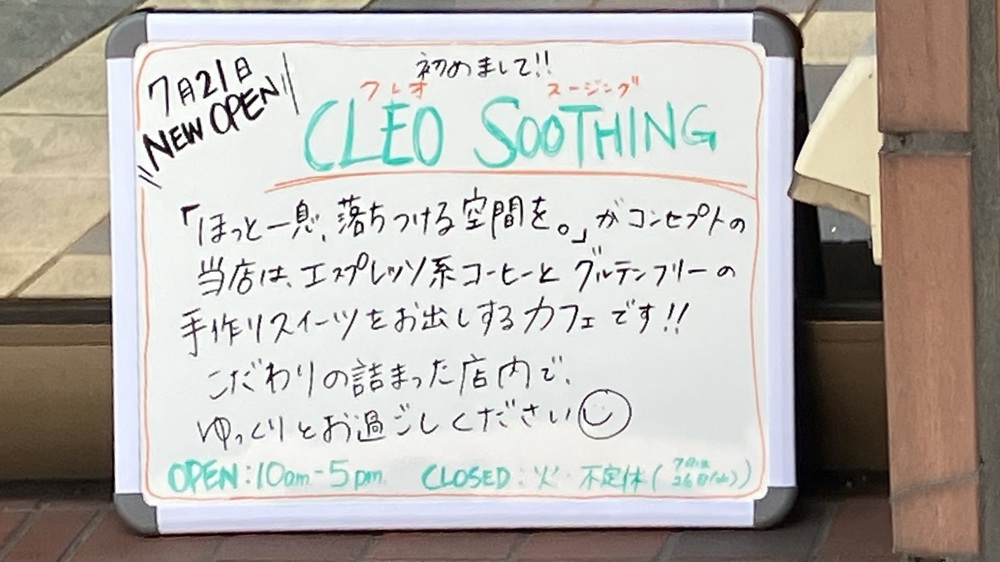 7月21日
NEW OPEN
初めまして!!
クレオ スージング
CLEO SOOTHING
「ほっと一息、落ちつける空間を。」がコンセプトの
当店は、エスプレッソ系コーヒーとグルテンフリーの
手作りスイーツをお出しするカフェです!!
こだわりの詰まった店内で、
ゆっくりとお過ごしください
OPEN:10am-5pm. CLOSED:火・不定休(7月は
26日